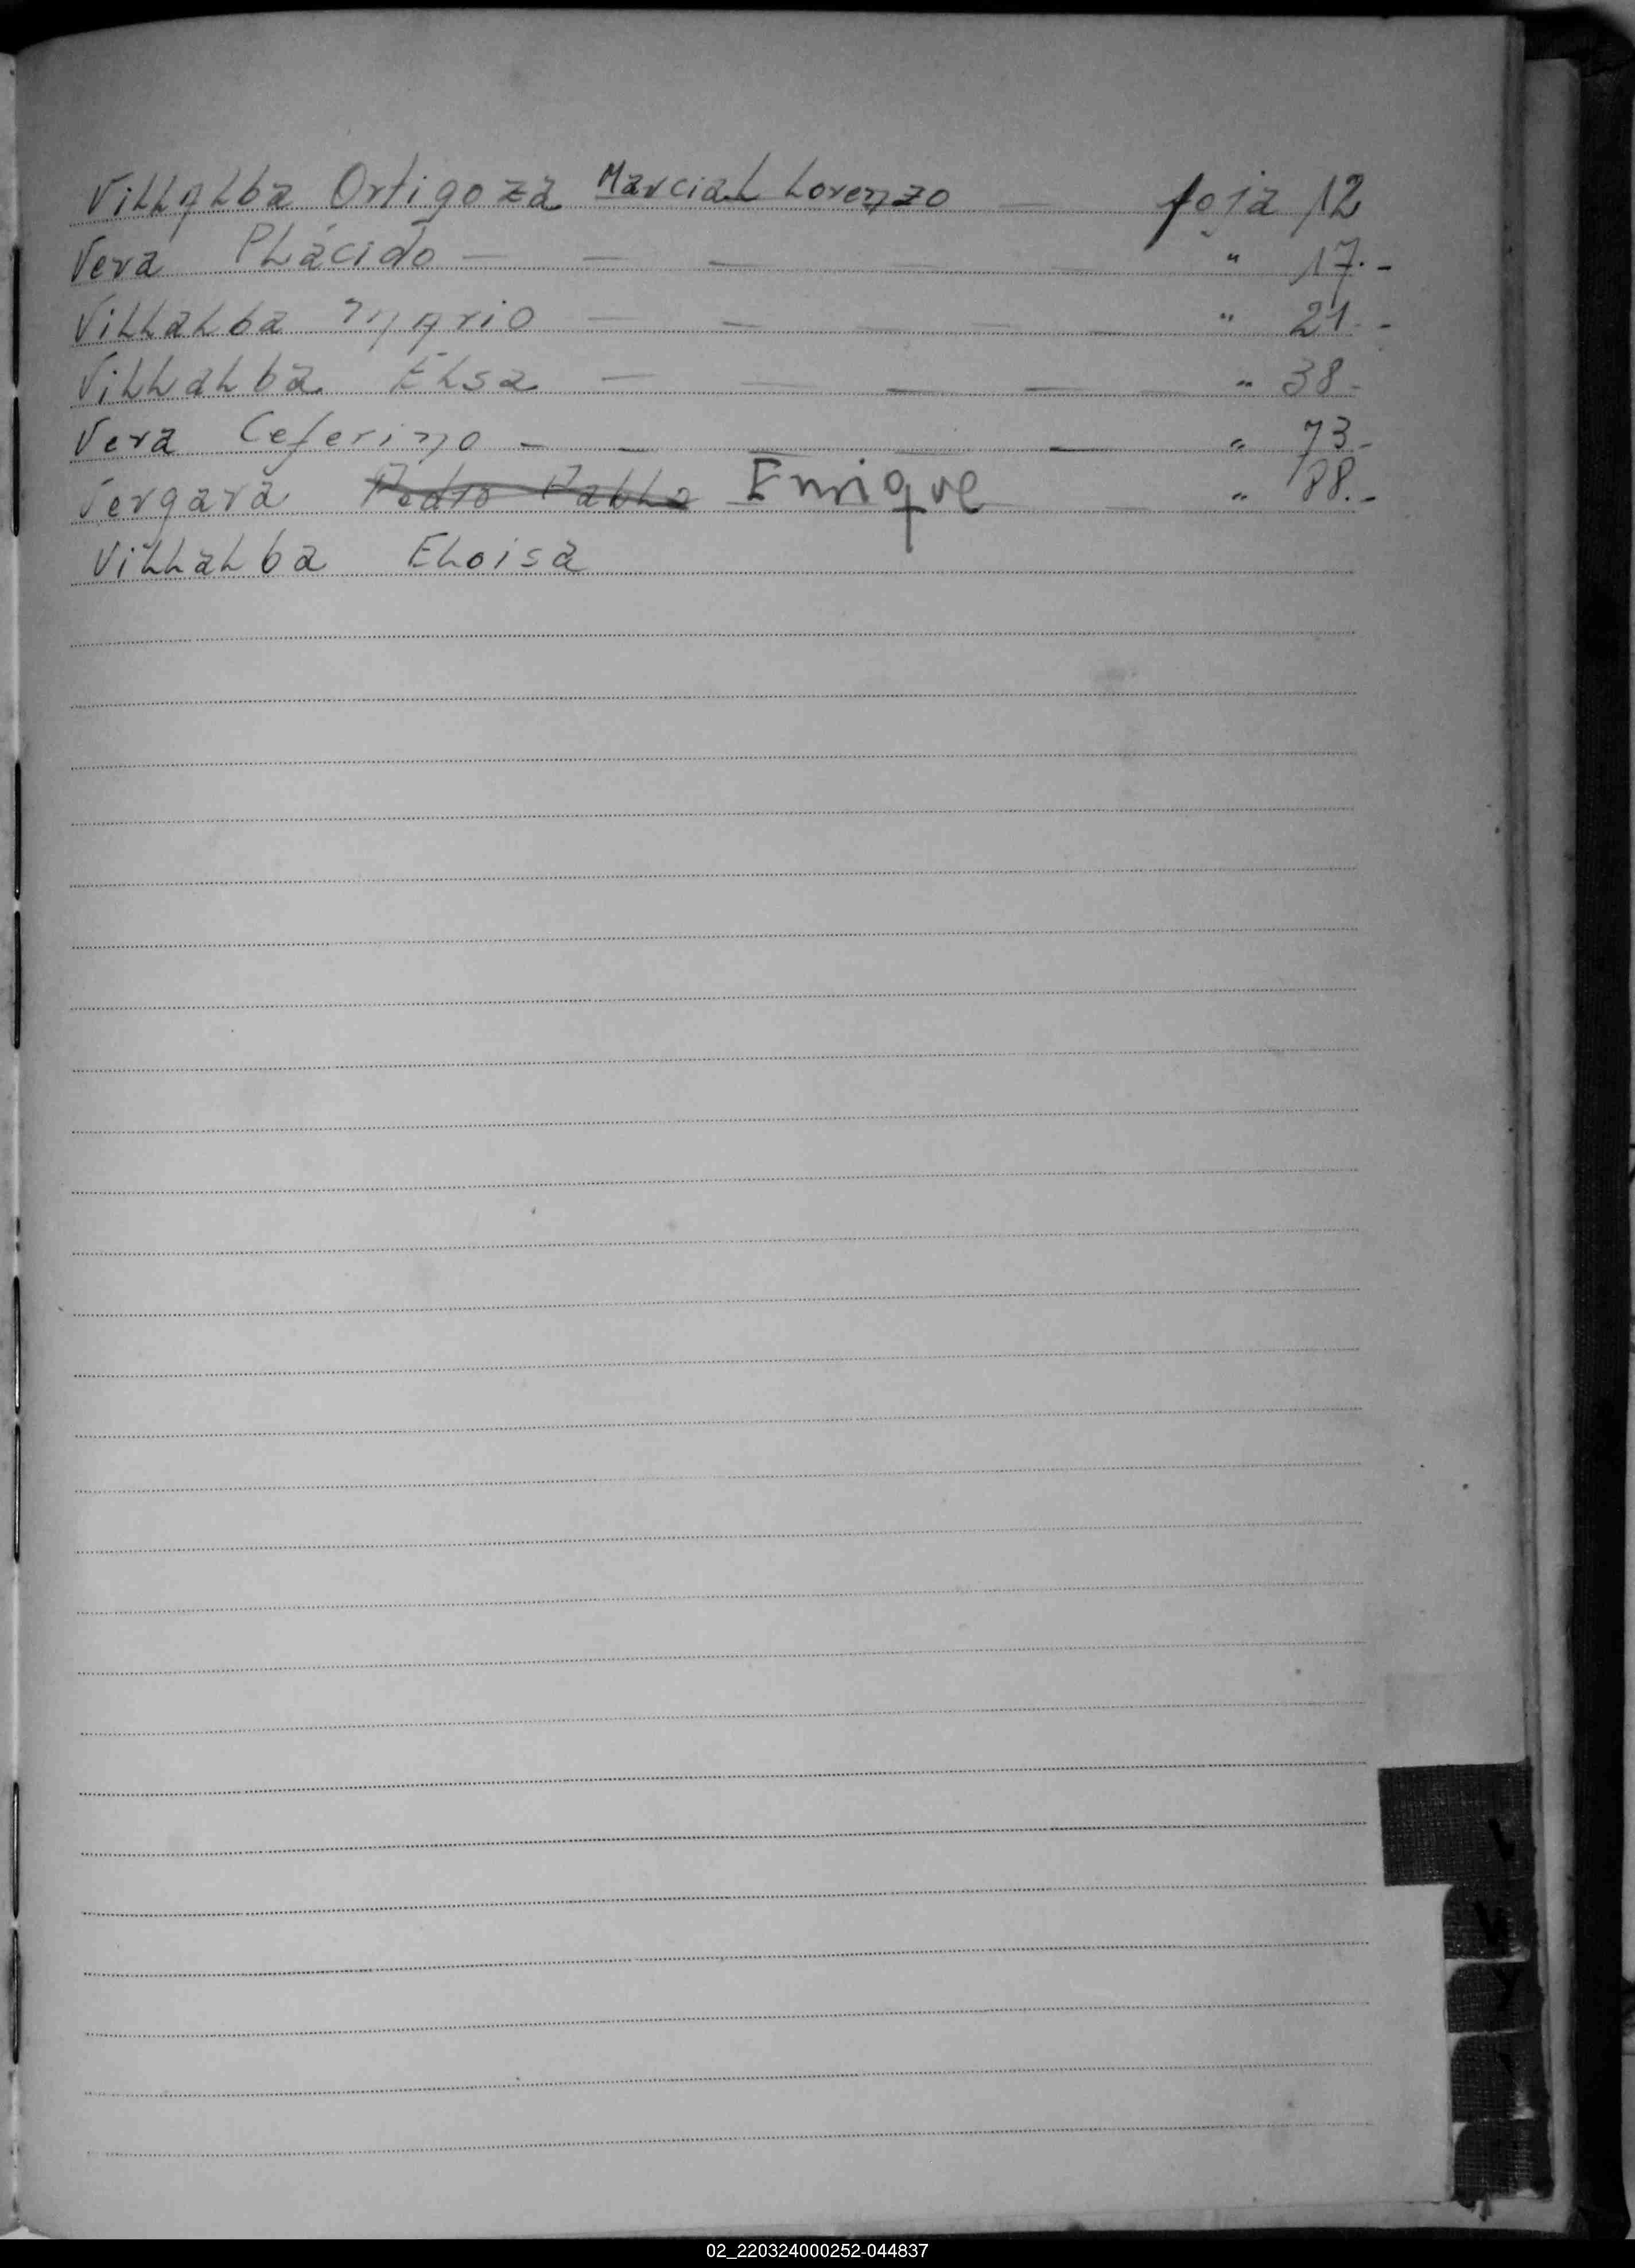 Villalba Ortigoza Marcial Lorenzo — foja 12
Vera Plácido — — — — — " 17.-
Villalba Mario — — — — — " 21.-
Villalba Elsa — — — — " 38-
Vera Ceferino — — — — " 73-
Vergara Pedro Pablo Enrique — " 88.-
Villalba Eloisa
V
W
Y
02_220324000252-044837